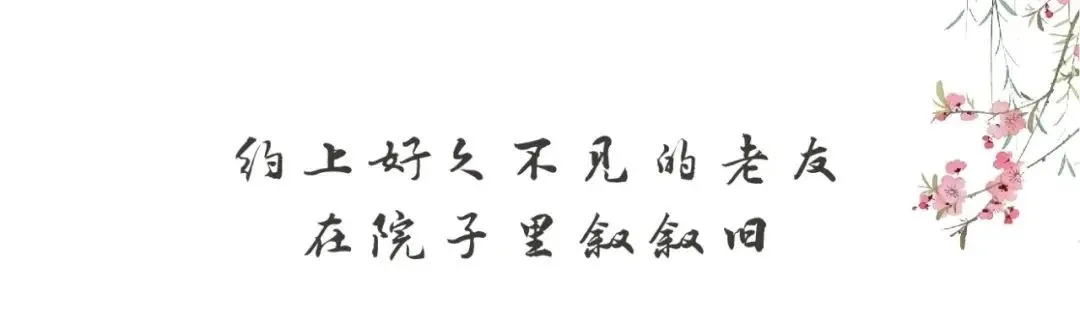 约上好久不见的老友
在院子里叙叙旧